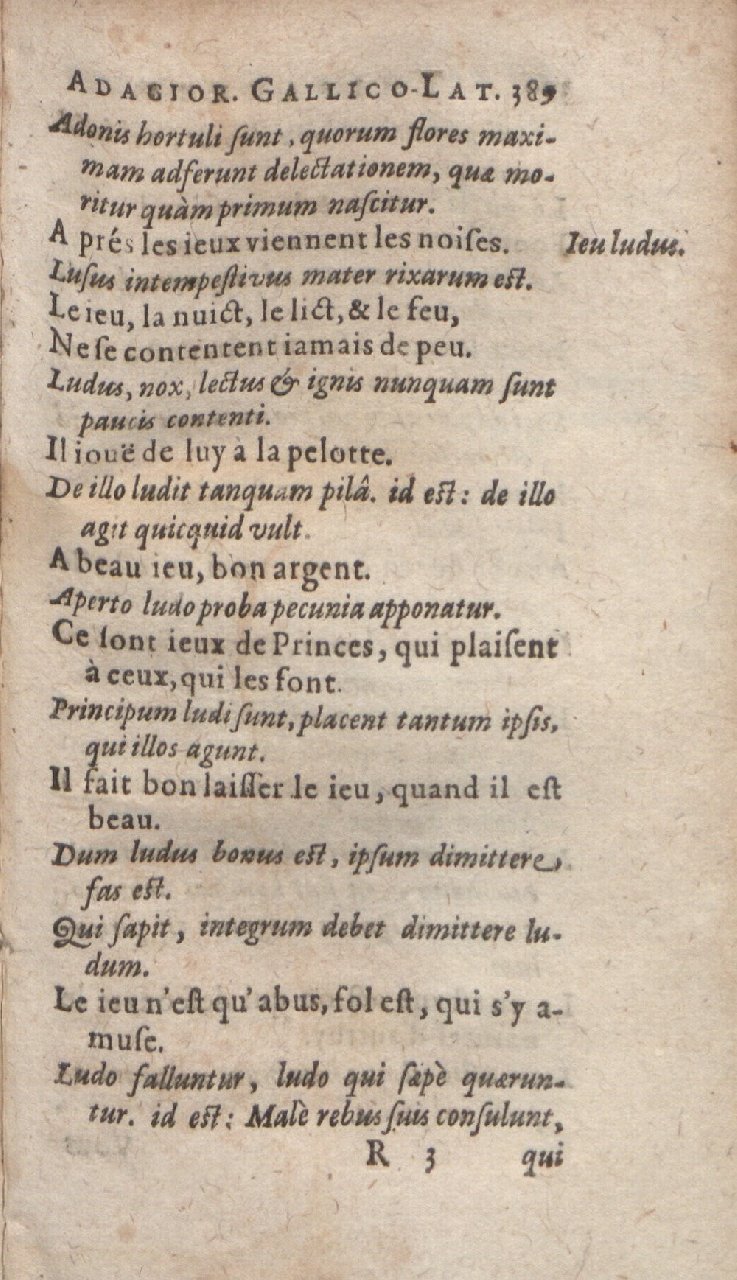 ADAGIOR. GALLICO-LAT. 389
Adonis hortuli ſunt, quorum flores maxi-
mam adferunt delectationem, quæ mo-
ritur quàm primum naſcitur.
A prés les ieux viennent les noiſes. Ieu ludus.
Luſus intempeſtivus mater rixarum eſt.
Le ieu, la nuict, le lict, & le feu,
Ne ſe contentent iamais de peu.
Ludus, nox, lectus & ignis nunquam ſunt
paucis contenti.
Il iouë de luy à la pelotte.
De illo ludit tanquam pilâ. id eſt: de illo
agit quicquid vult.
A beau ieu, bon argent.
Aperto ludo proba pecunia apponatur.
Ce ſont ieux de Princes, qui plaiſent
à ceux, qui les font.
Principum ludi ſunt, placent tantum ipſis,
qui illos agunt.
Il fait bon laiſſer le ieu, quand il eſt
beau.
Dum ludus bonus eſt, ipſum dimittere
fas eſt.
Qui ſapit, integrum debet dimittere lu-
dum.
Le ieu n'eſt qu'abus, fol eſt, qui s'y a-
muſe.
Ludo falluntur, ludo qui ſæpè quærun-
tur. id eſt: Malè rebus ſuis conſulunt,
R 3 qui